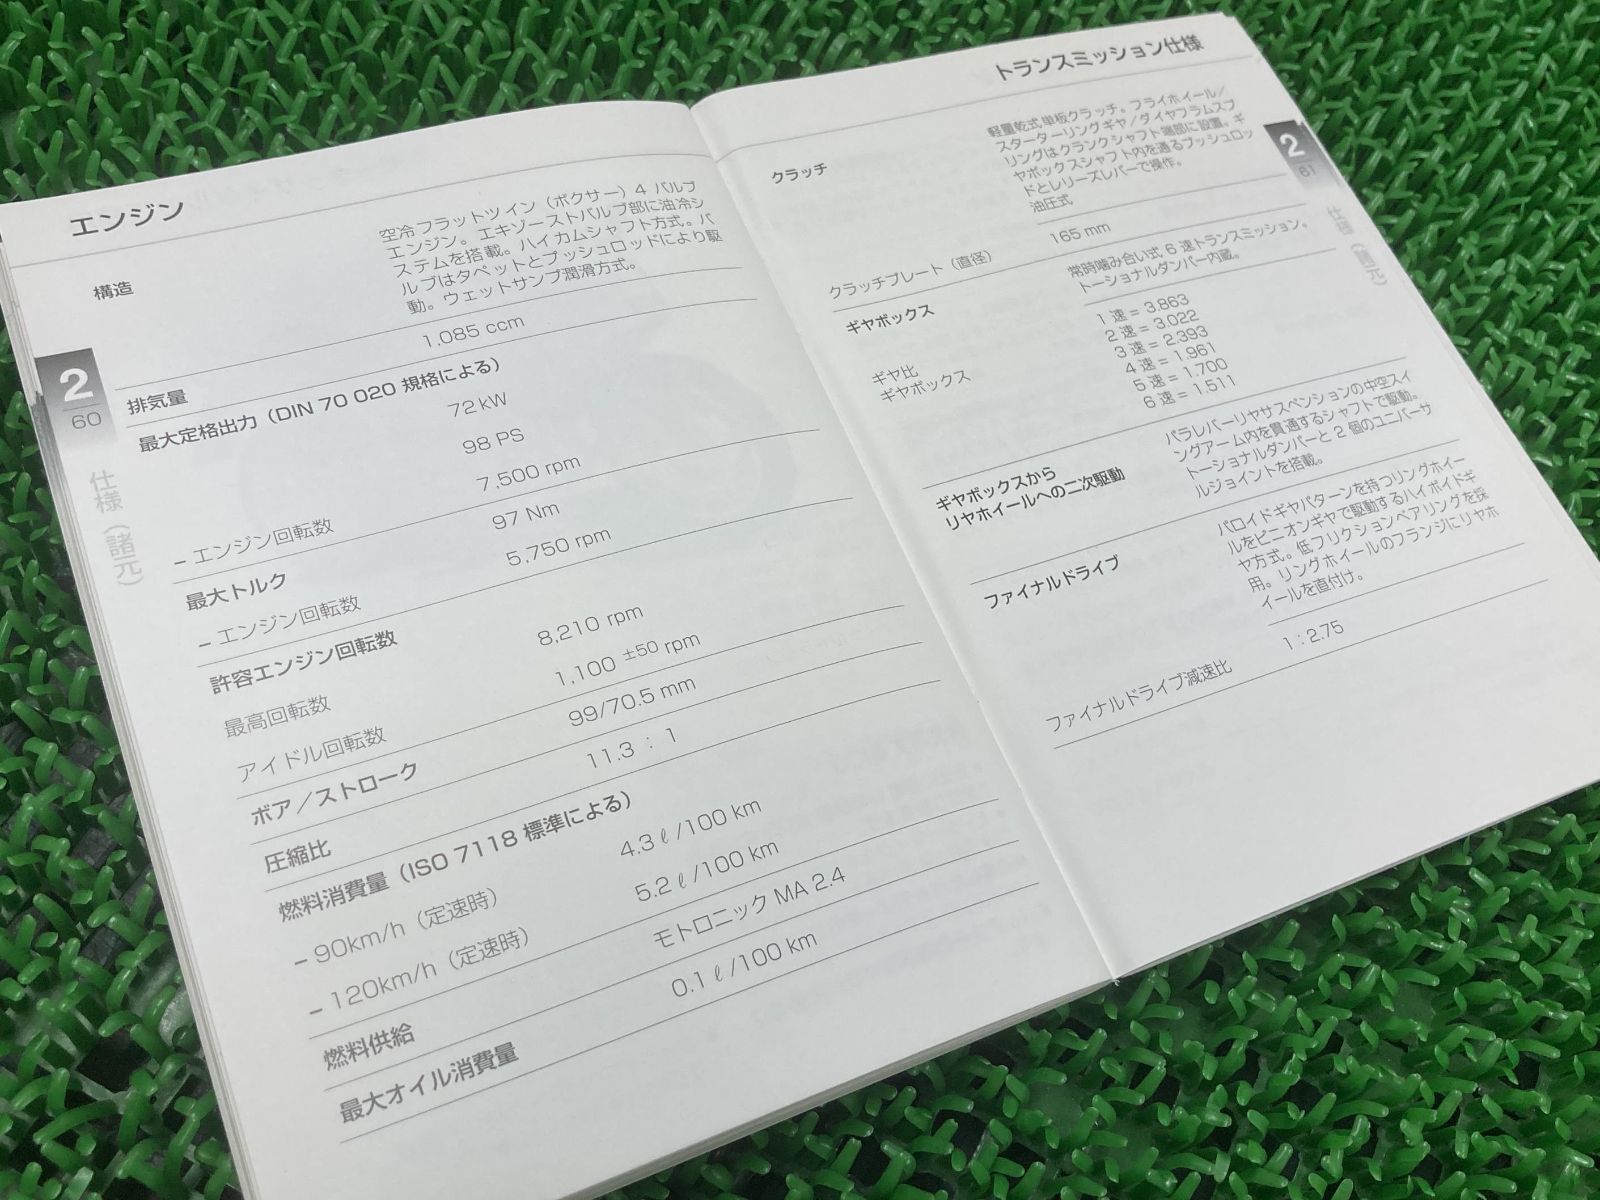 エンジン
構造
空冷フラットツイン（ボクサー）4 バルブ
エンジン。エキゾーストバルブ部に油冷シ
ステムを搭載。ハイカムシャフト方式。バ
ルブはタペットとプッシュロッドにより駆
動。ウェットサンプ潤滑方式。
排気量
1,085 ccm
最大定格出力（DIN 70 020 規格による）
72 kW
98 PS
– エンジン回転数
7,500 rpm
最大トルク
97 Nm
– エンジン回転数
5,750 rpm
許容エンジン回転数
最高回転数
8,210 rpm
アイドル回転数
1,100 ±50 rpm
ボア／ストローク
99/70.5 mm
圧縮比
11.3 : 1
燃料消費量（ISO 7118 標準による）
– 90km/h（定速時）
4.3 ℓ/100 km
– 120km/h（定速時）
5.2 ℓ/100 km
燃料供給
モトロニック MA 2.4
最大オイル消費量
0.1 ℓ/100 km
2
60
仕様（諸元）
トランスミッション仕様
クラッチ
軽量乾式単板クラッチ。フライホイール／
スターターリングギヤ／ダイヤフラムスプ
リングはクランクシャフト端部に設置。ギ
ヤボックスシャフト内を通るプッシュロッ
ドとレリーズレバーで操作。
油圧式
クラッチプレート（直径）
165 mm
ギヤボックス
常時噛み合い式 6 速トランスミッション。
トーショナルダンパー内蔵。
ギヤ比
ギヤボックス
1 速 = 3.863
2 速 = 3.022
3 速 = 2.393
4 速 = 1.961
5 速 = 1.700
6 速 = 1.511
ギヤボックスから
リヤホイールへの二次駆動
パラレバーリヤサスペンションの中空スイ
ングアーム内を貫通するシャフトで駆動。
トーショナルダンパーと 2 個のユニバーサ
ルジョイントを搭載。
ファイナルドライブ
パロイドギヤパターンを持つリングホイー
ルをピニオンギヤで駆動するハイポイドギ
ヤ方式。低フリクションベアリングを採
用。リングホイールのフランジにリヤホ
イールを直付け。
ファイナルドライブ減速比
1 : 2.75
2
61
仕様（諸元）